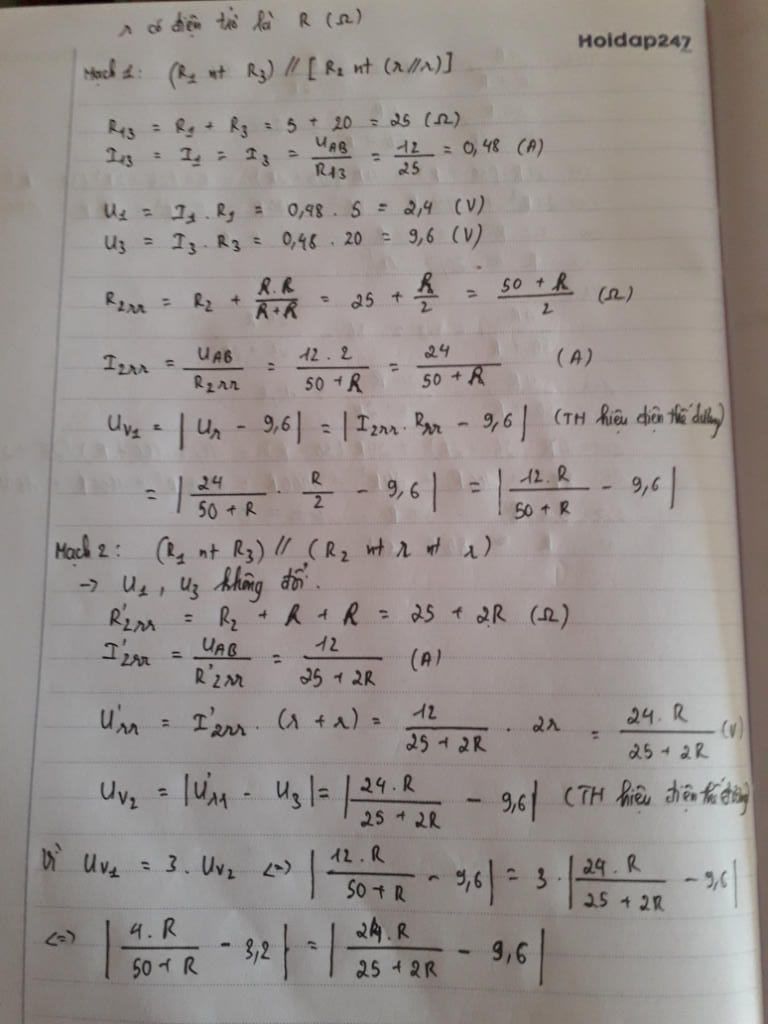 r có điện trở là R (Ω)
Hoidap247
Mạch 1: (R₁ nt R₃) // [R₂ nt (r//r)]
R₁₃ = R₁ + R₃ = 5 + 20 = 25 (Ω)
I₁₃ = I₁ = I₃ = U_AB/R₁₃ = 12/25 = 0,48 (A)
U₁ = I₁ . R₁ = 0,48 . 5 = 2,4 (V)
U₃ = I₃ . R₃ = 0,48 . 20 = 9,6 (V)
R₂rr = R₂ + R.R/(R+R) = 25 + R/2 = (50 + R)/2 (Ω)
I₂rr = U_AB/R₂rr = 12.2/(50 + R) = 24/(50 + R) (A)
U_V₁ = |Ur - 9,6| = |I₂rr . Rrr - 9,6| (TH hiệu điện thế dương)
= |24/(50 + R) . R/2 - 9,6| = |12.R/(50 + R) - 9,6|
Mạch 2: (R₁ nt R₃) // (R₂ nt r nt r)
→ U₁, U₃ không đổi.
R'₂rr = R₂ + R + R = 25 + 2R (Ω)
I'₂rr = U_AB/R'₂rr = 12/(25 + 2R) (A)
U'rr = I'₂rr . (r + r) = 12/(25 + 2R) . 2r = 24.R/(25 + 2R) (V)
U_V₂ = |U'rr - U₃| = |24.R/(25 + 2R) - 9,6| (TH hiệu điện thế dương)
Vì U_V₁ = 3. U_V₂ <=> |12.R/(50 + R) - 9,6| = 3 . |24.R/(25 + 2R) - 9,6|
<=> |4.R/(50 + R) - 3,2| = |24.R/(25 + 2R) - 9,6|